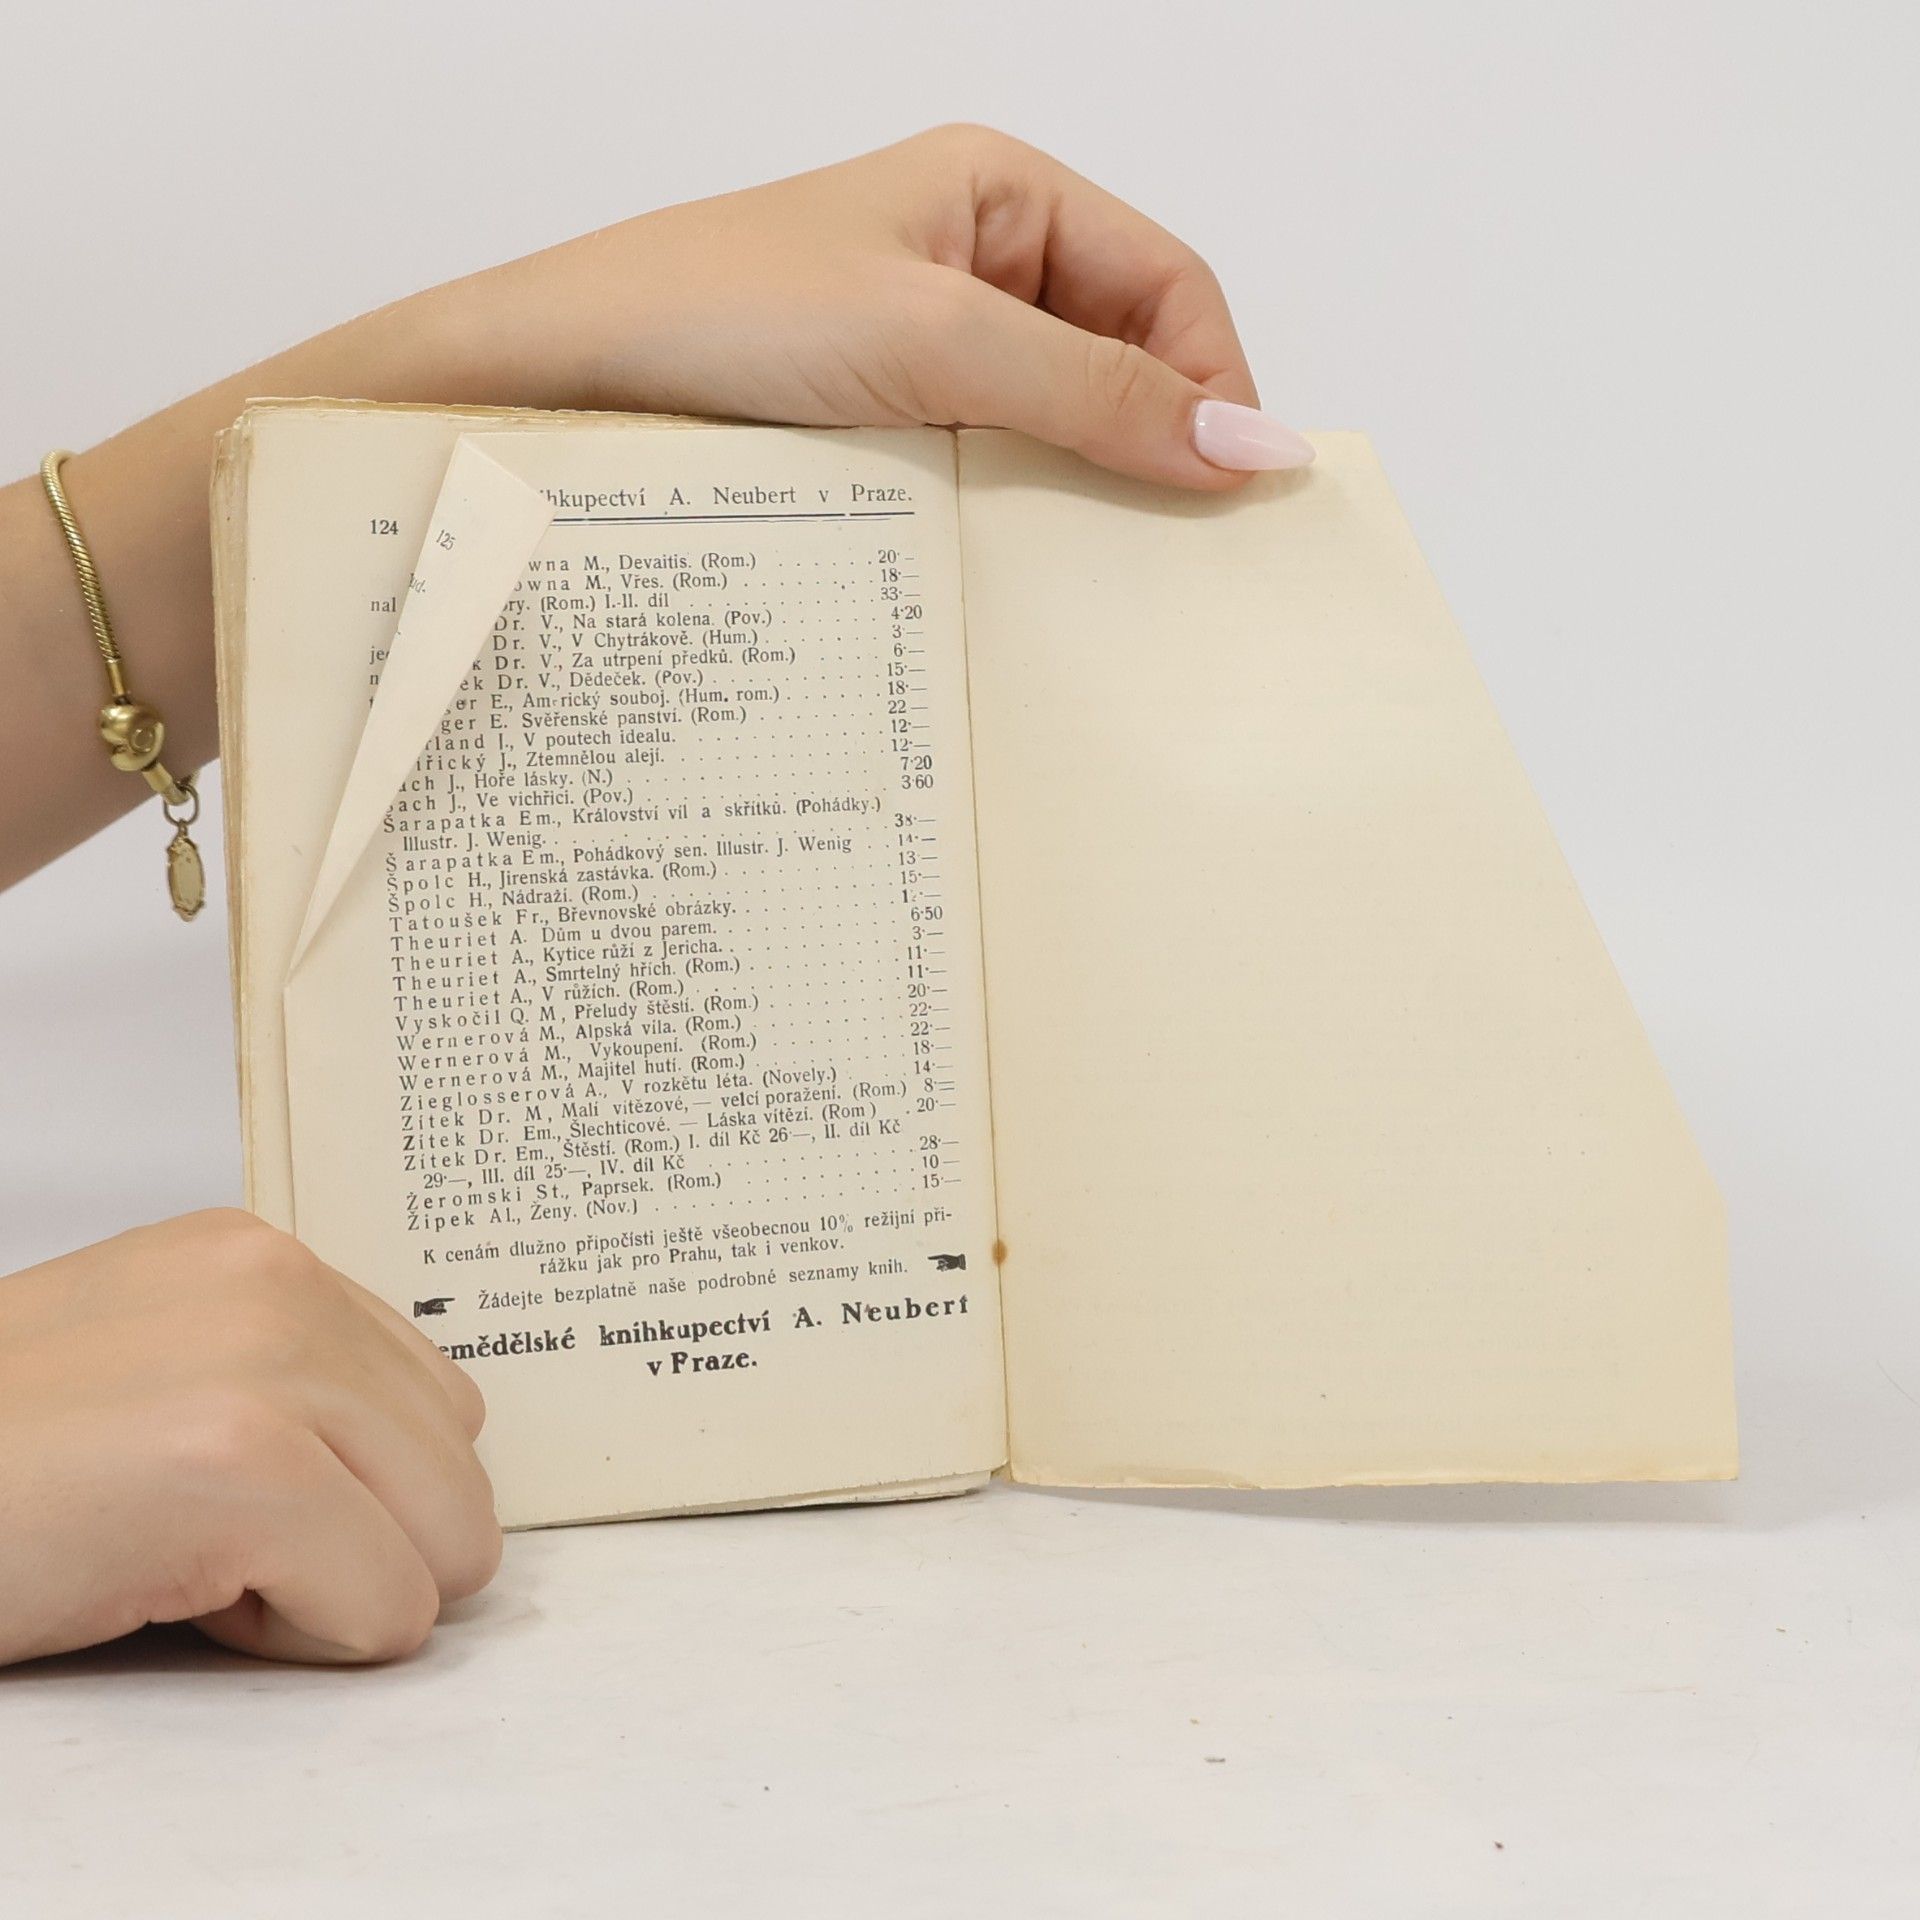 A. Neubert v Praze.
124
125
M., Devaitis. (Rom.) . . . . . . 20·—
M., Vřes. (Rom.) . . . . . . . 18·—
nal (Rom.) I.-II. díl . . . . . . . . 33·—
Dr. V., Na stará kolena. (Pov.) . . . . . . 4·20
Dr. V., V Chytrákově. (Hum.) . . . . . . 3·—
Dr. V., Za utrpení předků. (Rom.) . . . . 6·—
Dr. V., Dědeček. (Pov.) . . . . . . . . . 15·—
E., Americký souboj. (Hum. rom.) . . . . . . 18·—
E. Svěřenské panství. (Rom.) . . . . . . . 22—
J., V poutech idealu. . . . . . . . . . 12·—
J., Ztemnělou alejí. . . . . . . . . . . 12·—
J., Hoře lásky. (N.) . . . . . . . . . . . 7·20
J., Ve vichřici. (Pov.) . . . . . . . . . . 3·60
Šarapatka Em., Království vil a skřítků. (Pohádky.)
Illustr. J. Wenig. . . . . . . . . . . . . 38·—
Šarapatka Em., Pohádkový sen. Illustr. J. Wenig . . 14·—
Špolc H., Jirenská zastávka. (Rom.) . . . . . . . 13·—
Špolc H., Nádraží. (Rom.) . . . . . . . . . . 15·—
Tatoušek Fr., Břevnovské obrázky. . . . . . . . .
Theuriet A. Dům u dvou parem. . . . . . . . . 6·50
Theuriet A., Kytice růží z Jericha. . . . . . . . . 3·—
Theuriet A., Smrtelný hřích. (Rom.) . . . . . . . 11·—
Theuriet A., V růžích. (Rom.) . . . . . . . . . 11·—
Vyskočil Q. M, Přeludy štěstí. (Rom.) . . . . . . . 20·—
Wernerová M., Alpská vila. (Rom.) . . . . . . . . 22·—
Wernerová M., Vykoupení. (Rom.) . . . . . . . 22·—
Wernerová M., Majitel hutí. (Rom.) . . . . . . . . 18·—
Zieglosserová A., V rozkětu léta. (Novely.) . . . . 14·—
Zítek Dr. M, Malí vítězové, — velcí poražení. (Rom.) 8·—
Zítek Dr. Em., Šlechticové. — Láska vítězí. (Rom) . 20·—
Zítek Dr. Em., Štěstí. (Rom.) I. díl Kč 26·—, II. díl Kč
29·—, III. díl 25·—, IV. díl Kč . . . . . . . . . 28·—
Żeromski St., Paprsek. (Rom.) . . . . . . . . 10—
Žipek Al., Ženy. (Nov.) . . . . . . . . . . . 15·—
K cenám dlužno připočísti ještě všeobecnou 10% režijní při-
rážku jak pro Prahu, tak i venkov.
Žádejte bezplatně naše podrobné seznamy knih.
knihkupectví A. Neubert
v Praze.